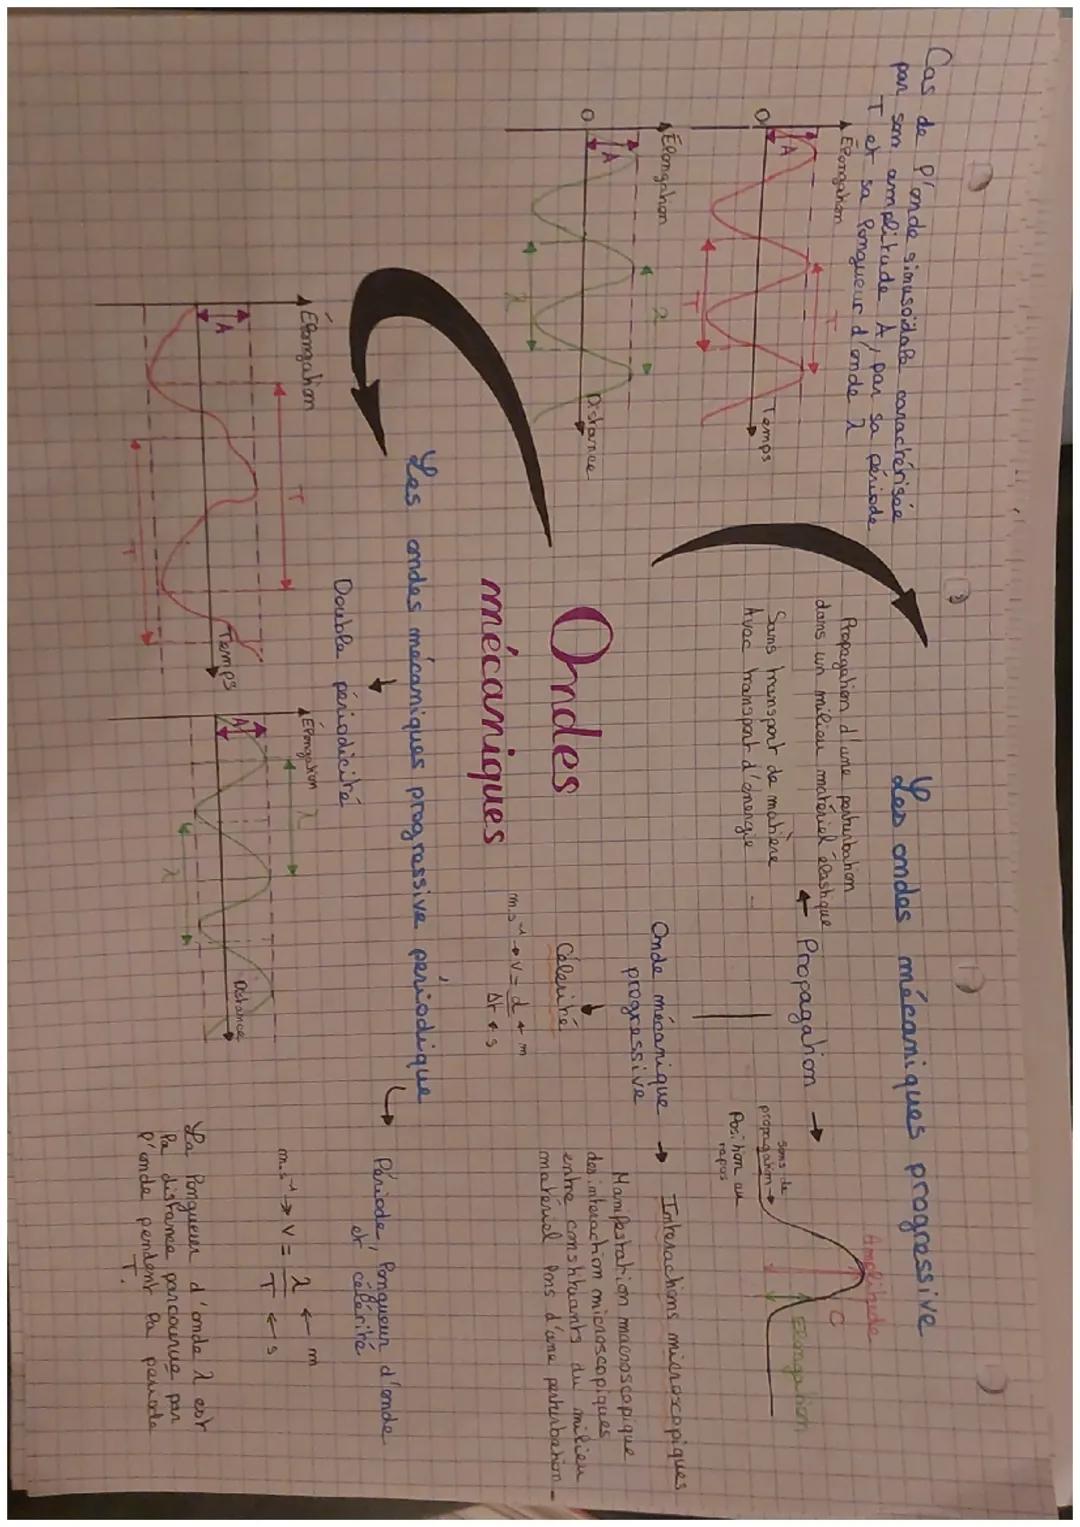 Les ondes mécaniques progressive
Propagation d'une perturbation
dans un milieu matériel élastique
Sans transport de matière
Avec transport d'énergie
Propagation
sens de
propagation
Position au
repos
Amplitude
C
Elongation
Onde mécanique
progressive
Interactions microscopiques
Manifestation macroscopique
des interaction microscopiques
entre constituants du milieu
materiel lors d'une perturbation
Célérité
m.s⁻¹ → v = d ← m
Δt ← s
Cas de l'onde sinusoïdale caractérisée
par son amplitude A, par sa période
T et sa longueur d'onde λ
Élongation
A
T
T
O
Temps
Élongation
A
λ
λ
O
Distance
Ondes
mécaniques
Les ondes mécaniques progressive périodique
Double périodicité
Élongation
A
T
T
Temps
Élongation
A
λ
λ
Distance
Période, longueur d'onde
et célérité
m.s⁻¹ → v = λ ← m
T ← s
La longueur d'onde λ est
la distance parcourue par
l'onde pendent la période
T.